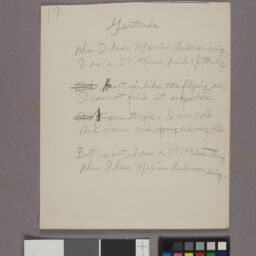 17.
Gertrude
When I hear Marian Anderson sing,
I am a STUffless kind of thing.
Heart is like the flying air.
I cannot find it anywhere.
Fingers tingle. I am cold
And warm and young and very old.
But, most, I am a STUffless thing
When I hear Marian Anderson sing.